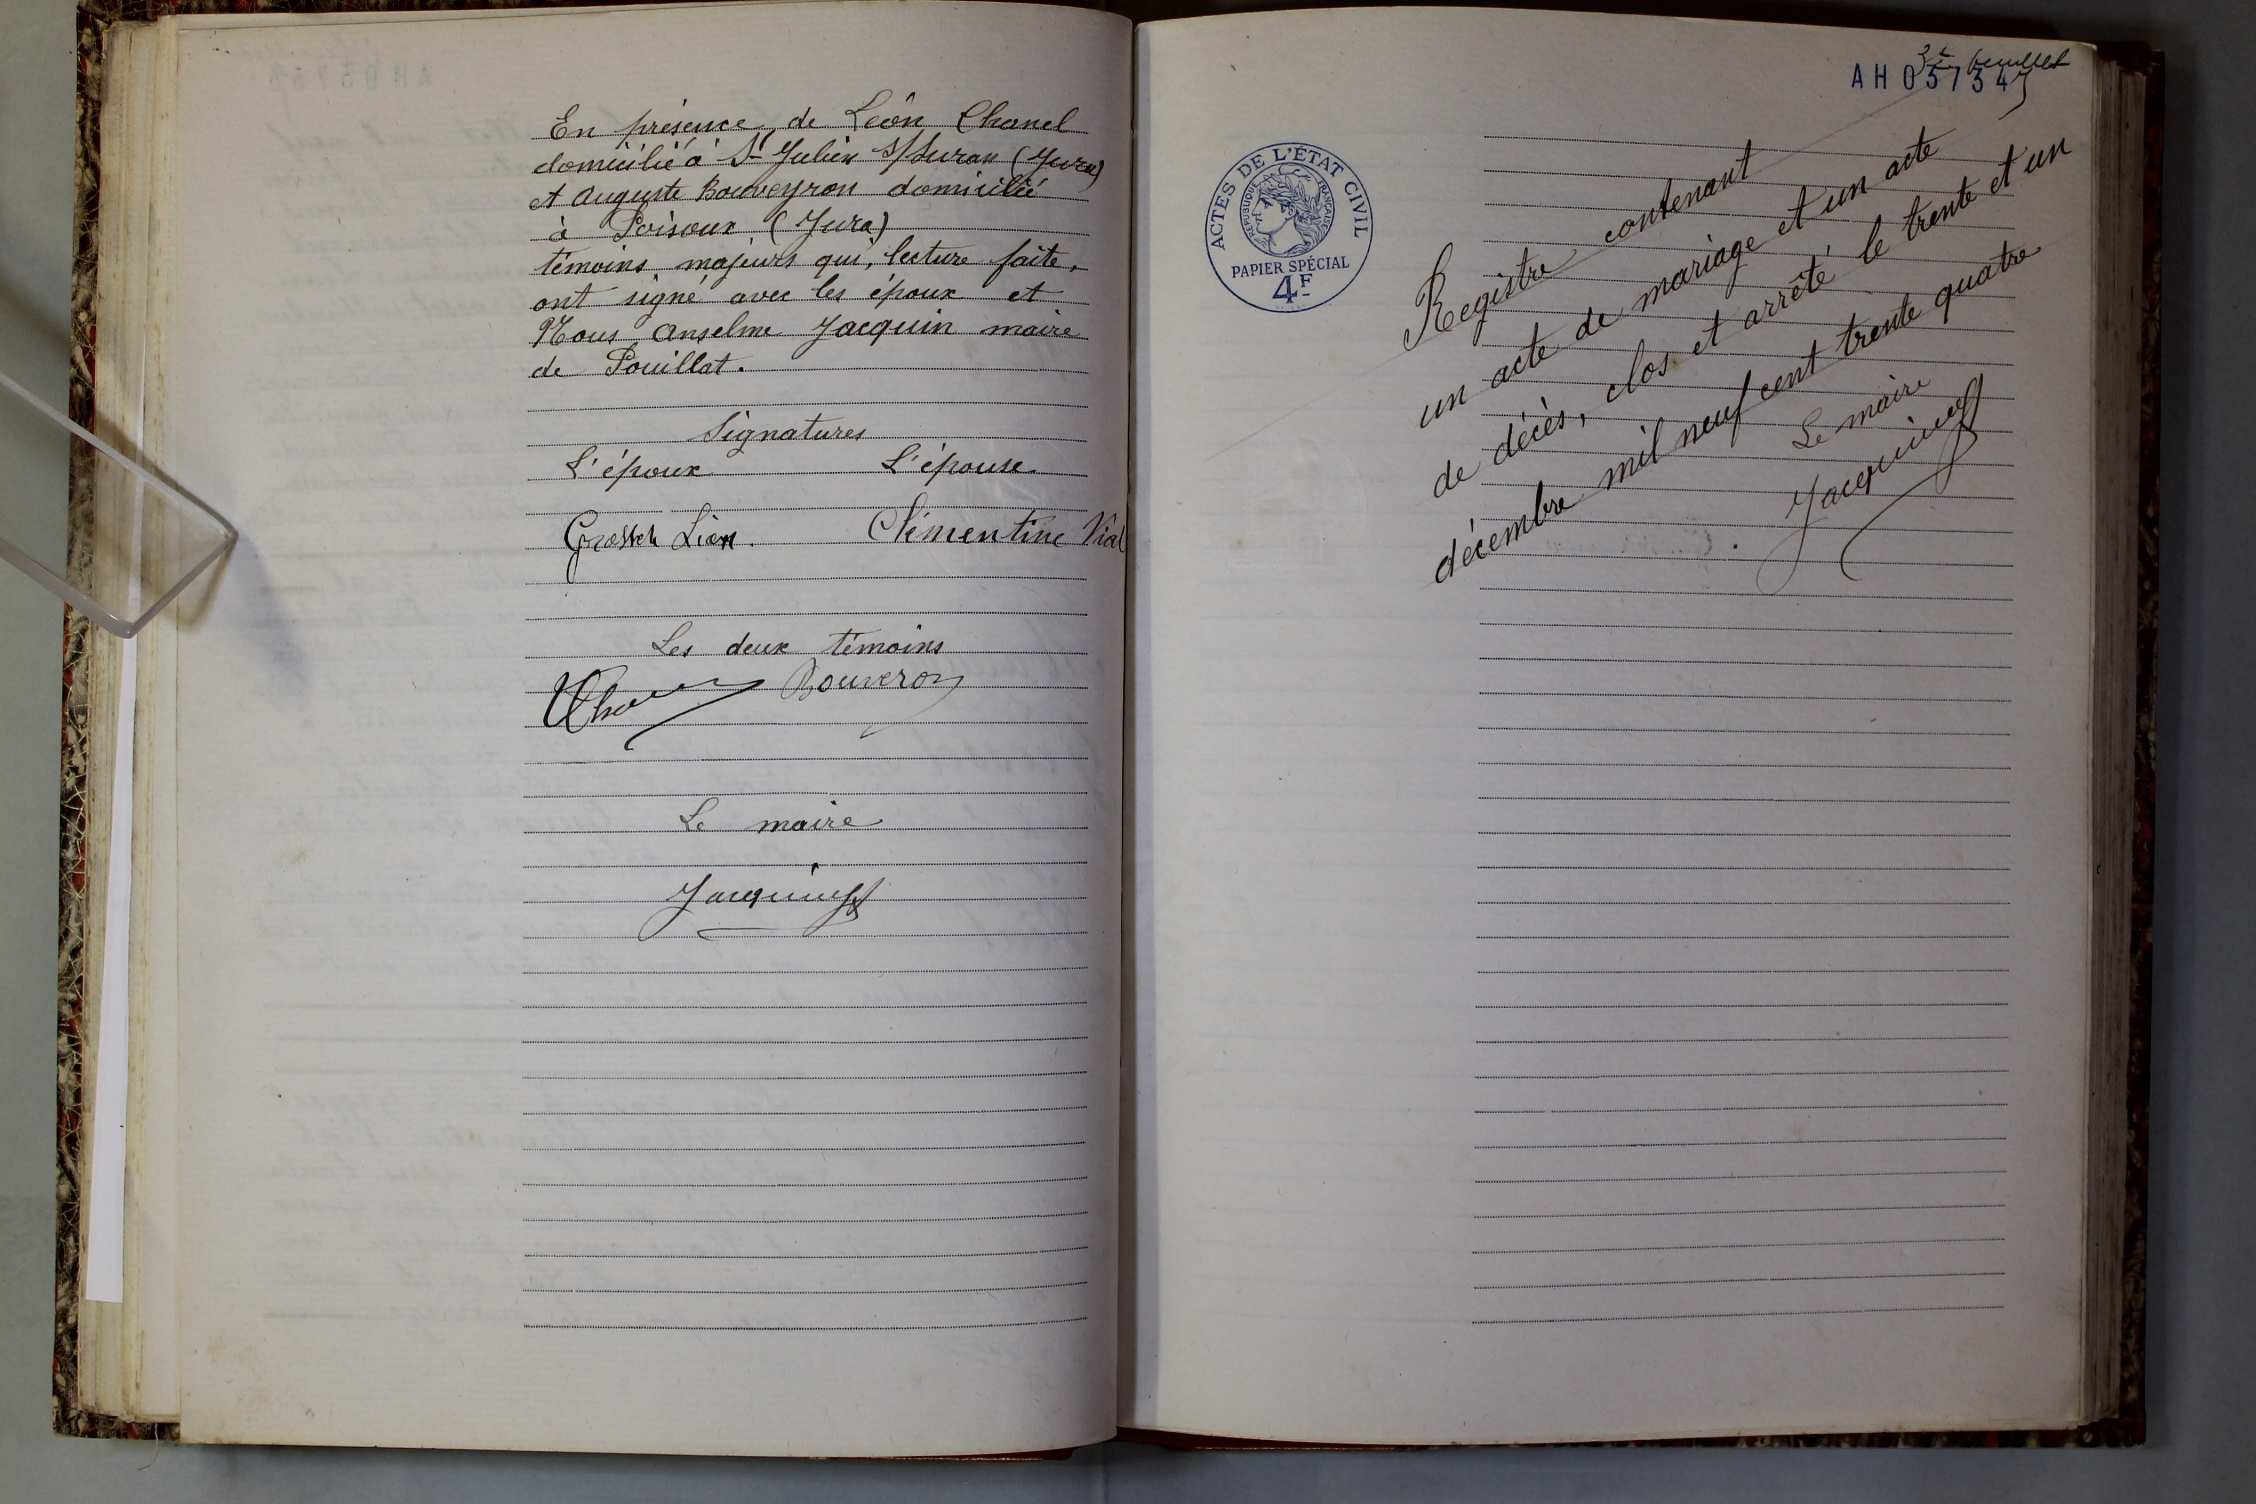 En présence de Léon Chanel
domicilié à St Julien s/Suran (Jura)
et Auguste Bouveyron domicilié
à Poisoux (Jura)
témoins majeurs qui, lecture faite,
ont signé avec les époux et
Nous Anselme Jacquin maire
de Pouillat.
Signatures
L'époux L'épouse
Léon. Clémentine Vial
Les deux témoins
Bouveron
Le maire
Jacquin
3è feuillet
AH 05734
ACTES DE L'ÉTAT CIVIL
RÉPUBLIQUE FRANÇAISE
PAPIER SPÉCIAL
4F
Registre contenant
un acte de mariage et un acte
de décès, clos et arrêté le trente et un
décembre mil neuf cent trente quatre
Le maire
Jacquin